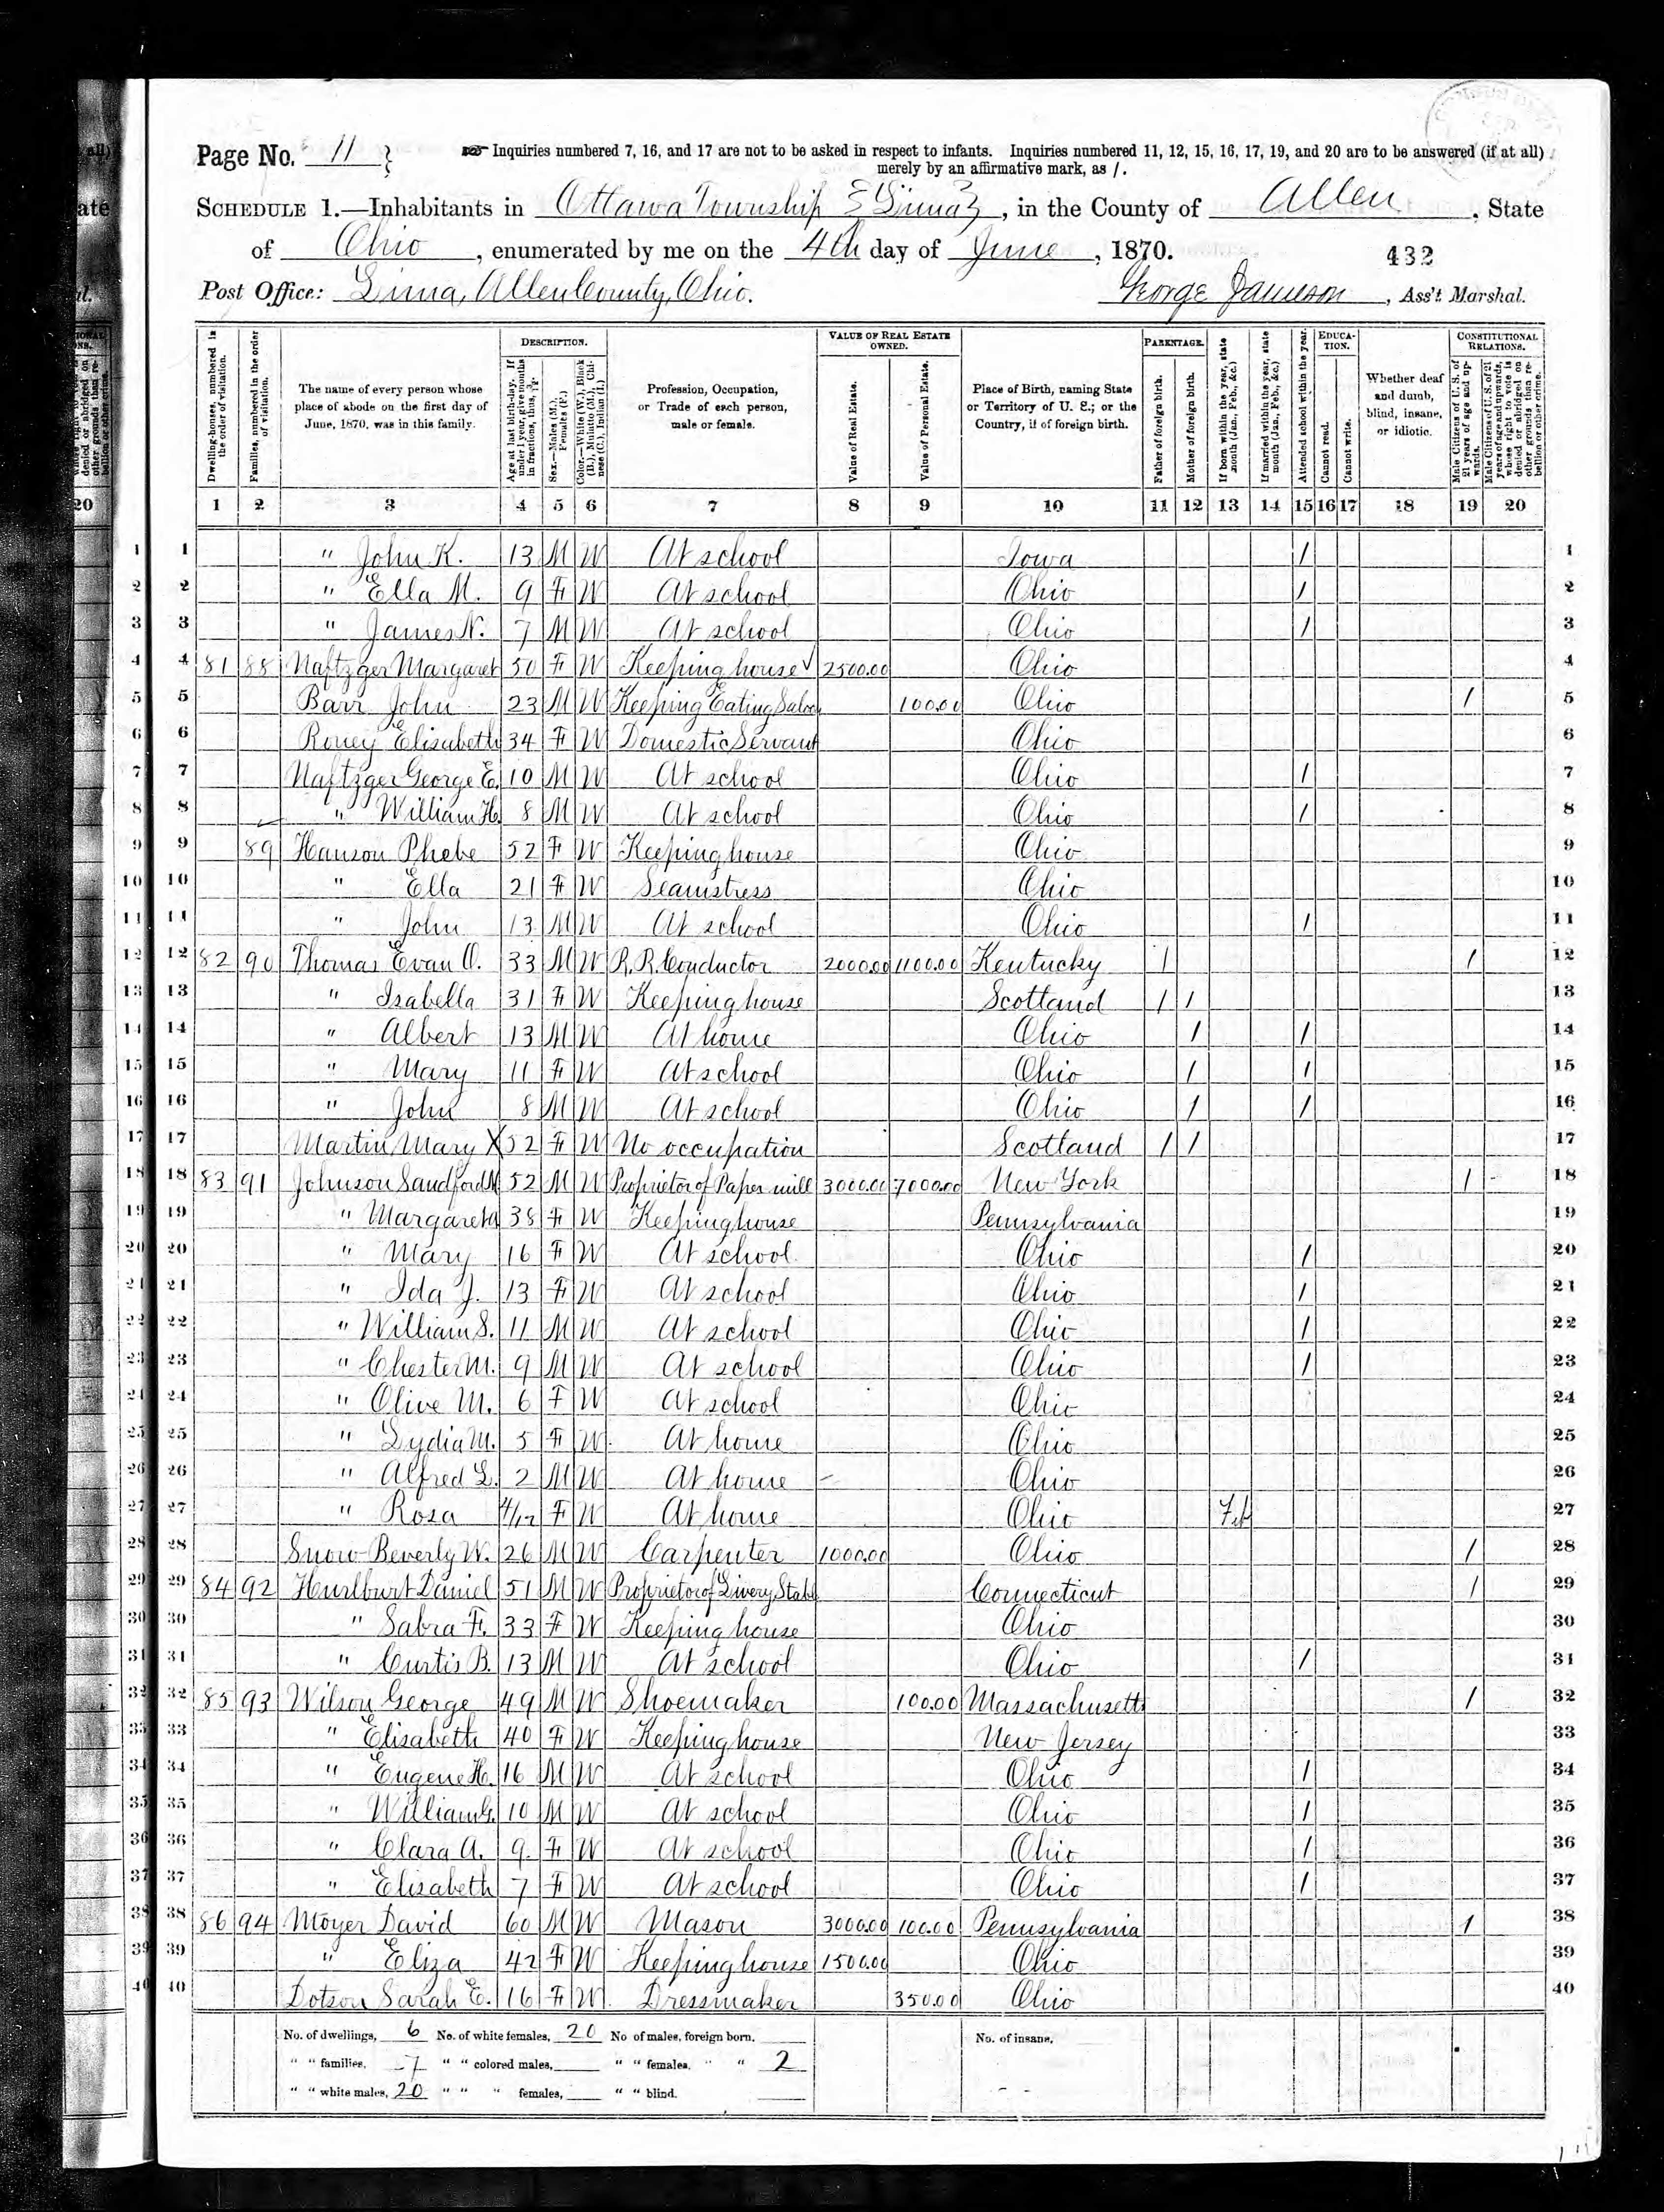 Page No. 11
Inquiries numbered 7, 16, and 17 are not to be asked in respect to infants. Inquiries numbered 11, 12, 15, 16, 17, 19, and 20 are to be answered (if at all)
merely by an affirmative mark, as /.
SCHEDULE 1.—Inhabitants in Ottawa Township {Lima}, in the County of Allen, State
of Ohio, enumerated by me on the 4th day of June, 1870.
432
Post Office: Lima, Allen County, Ohio. George Jameson, Ass't Marshal.
Dwelling-houses, numbered in the order of visitation.
Families, numbered in the order of visitation.
The name of every person whose place of abode on the first day of June, 1870, was in this family.
DESCRIPTION.
Age at last birth-day. If under 1 year, give months in fractions, thus, 3/12.
Sex.—Males (M.), Females (F.)
Color.—White (W.), Black (B.), Mulatto (M.), Chinese (C.), Indian (I.)
Profession, Occupation, or Trade of each person, male or female.
VALUE OF REAL ESTATE OWNED.
Value of Real Estate.
Value of Personal Estate.
Place of Birth, naming State or Territory of U. S.; or the Country, if of foreign birth.
PARENTAGE.
Father of foreign birth.
Mother of foreign birth.
If born within the year, state month (Jan., Feb., &c.)
If married within the year, state month (Jan., Feb., &c.)
Attended school within the year.
EDUCATION.
Cannot read.
Cannot write.
Whether deaf and dumb, blind, insane, or idiotic.
CONSTITUTIONAL RELATIONS.
Male Citizens of U. S. of 21 years of age and upwards.
Male Citizens of U. S. of 21 years of age and upwards, whose right to vote is denied or abridged on other grounds than rebellion or other crime.
1 2 3 4 5 6 7 8 9 10 11 12 13 14 15 16 17 18 19 20
1 " John K. 13 M W At school Iowa / 1
2 " Ella M. 9 F W At school Ohio / 2
3 " James N. 7 M W At school Ohio / 3
4 81 88 Naftzger Margaret 50 F W Keeping house 2500.00 Ohio 4
5 Barr John 23 M W Keeping Eating Saloon 100.00 Ohio / 5
6 Roney Elisabeth 34 F W Domestic Servant Ohio 6
7 Naftzger George E. 10 M W At school Ohio / 7
8 " William H. 8 M W At school Ohio / 8
9 89 Hanson Phebe 52 F W Keeping house Ohio 9
10 " Ella 21 F W Seamstress Ohio 10
11 " John 13 M W At school Ohio / 11
12 82 90 Thomas Evan O. 33 M W R. R. Conductor 2000.00 1100.00 Kentucky / / 12
13 " Isabella 31 F W Keeping house Scotland / / 13
14 " Albert 13 M W At home Ohio / / 14
15 " Mary 11 F W At school Ohio / / 15
16 " John 8 M W At school Ohio / / 16
17 Martin Mary X 52 F W No occupation Scotland / / 17
18 83 91 Johnson Sandford M 52 M W Proprietor of Paper mill 3000.00 7000.00 New York / 18
19 " Margaret A 38 F W Keeping house Pennsylvania 19
20 " Mary 16 F W At school Ohio / 20
21 " Ida J. 13 F W At school Ohio / 21
22 " William S. 11 M W At school Ohio / 22
23 " Chester M. 9 M W At school Ohio / 23
24 " Olive M. 6 F W At school Ohio 24
25 " Lydia M. 5 F W At home Ohio 25
26 " Alfred L. 2 M W At home Ohio 26
27 " Rosa 4/12 F W At home Ohio Feb 27
28 Snow Beverly W. 26 M W Carpenter 1000.00 Ohio / 28
29 84 92 Hurlburt Daniel 51 M W Proprietor of Livery Stabl Connecticut / 29
30 " Sabra F. 33 F W Keeping house Ohio 30
31 " Curtis B. 13 M W At school Ohio / 31
32 85 93 Wilson George 49 M W Shoemaker 100.00 Massachusetts / 32
33 " Elisabeth 40 F W Keeping house New Jersey 33
34 " Eugene H. 16 M W At school Ohio / 34
35 " William G. 10 M W At school Ohio / 35
36 " Clara A. 9 F W At school Ohio / 36
37 " Elisabeth 7 F W At school Ohio / 37
38 86 94 Moyer David 60 M W Mason 3000.00 100.00 Pennsylvania / 38
39 " Eliza 42 F W Keeping house 1500.00 Ohio 39
40 Dotson Sarah E. 16 F W Dressmaker 350.00 Ohio 40
No. of dwellings, 6 No. of white females, 20 No of males, foreign born. No. of insane,
" " families, 7 " " colored males, " " females, " " 2
" " white males, 20 " " " females, " " blind.